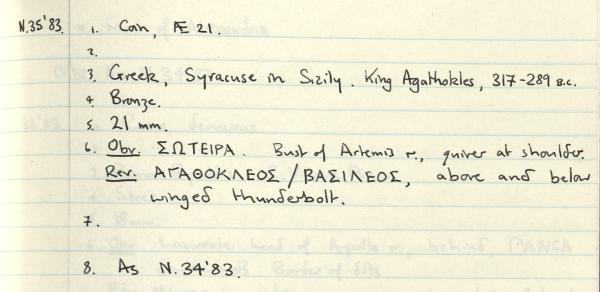 N.35'83. 1. Coin, Æ 21.
2.
3. Greek, Syracuse in Sicily. King Agathokles, 317-289 B.C.
4. Bronze.
5. 21 mm.
6. Obv. ΣΩΤΕΙΡΑ. Bust of Artemis r., quiver at shoulder.
Rev. ΑΓΑΘΟΚΛΕΟΣ/ΒΑΣΙΛΕΟΣ, above and below
winged thunderbolt.
7.
8. As N.34'83.